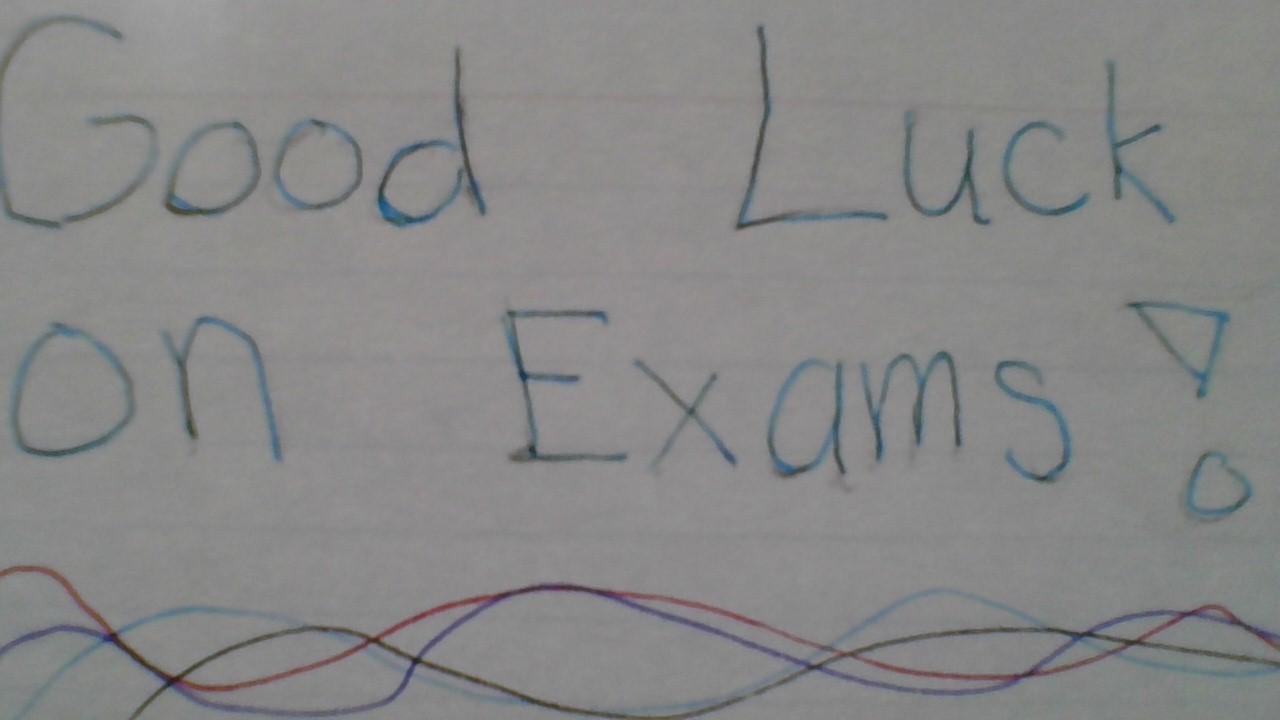 Good Luck
on Exams!